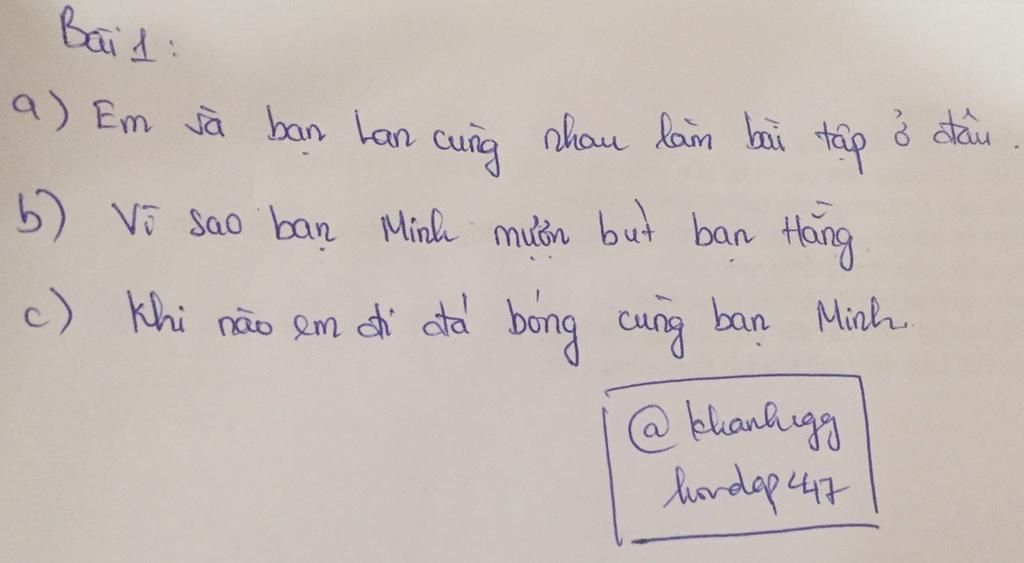 Bài 1:
a) Em và bạn Lan cùng nhau làm bài tập ở đâu.
b) Vì sao bạn Minh mượn bút bạn Hằng
c) Khi nào em đi đá bóng cùng bạn Minh.
@khanhugg